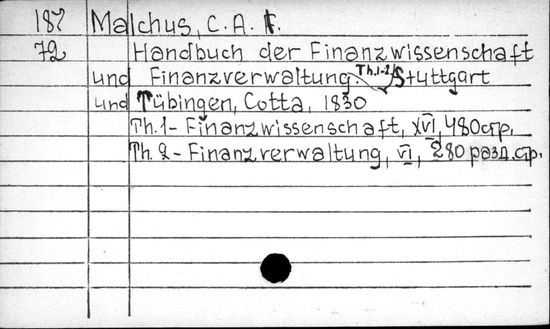 187 Malchus, C. A. F.
72 Handbuch der Finanzwissenschaft
und Finanzverwaltung. Th.1-2. Stuttgart
und Tübingen, Cotta, 1830
Th. 1 - Finanzwissenschaft, XVI, 480 стр.
Th. 2 - Finanzverwaltung, VI, 280 разд. стр.